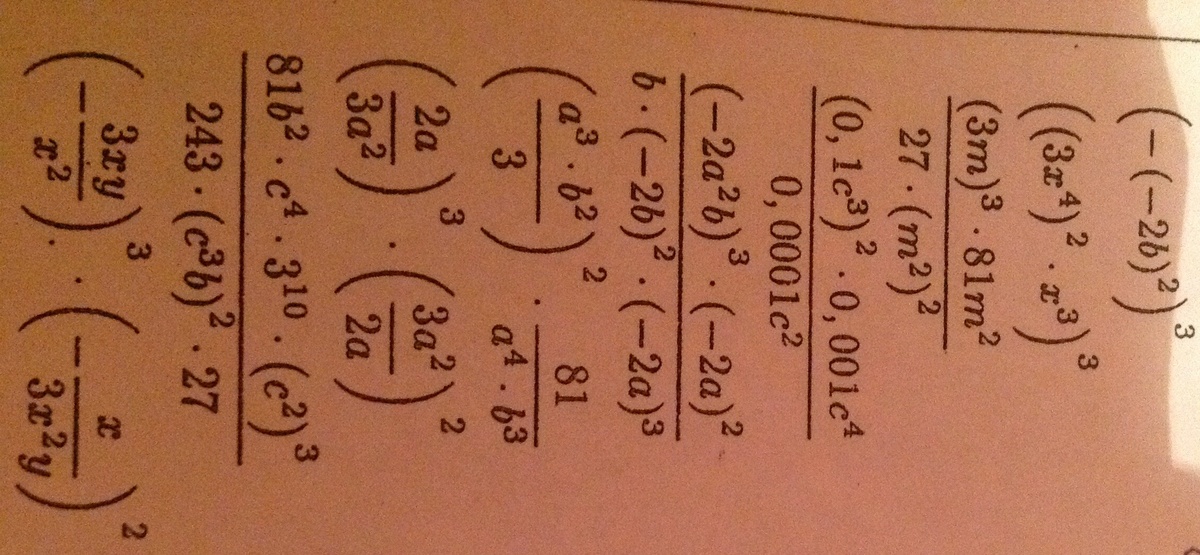 (-(-2b)²)³
((3x⁴)² · x³)³
(3m)³ · 81m²
27 · (m²)²
(0, 1c³)² · 0, 001c⁴
0, 0001c²
(-2a²b)³ · (-2a)²
b · (-2b)² · (-2a)³
(a³ · b² / 3)² · 81 / a⁴ · b³
(2a / 3a²)³ · (3a² / 2a)²
81b² · c⁴ · 3¹⁰ · (c²)³
243 · (c³b)² · 27
(- 3xy / x²)³ · (- x / 3x²y)²